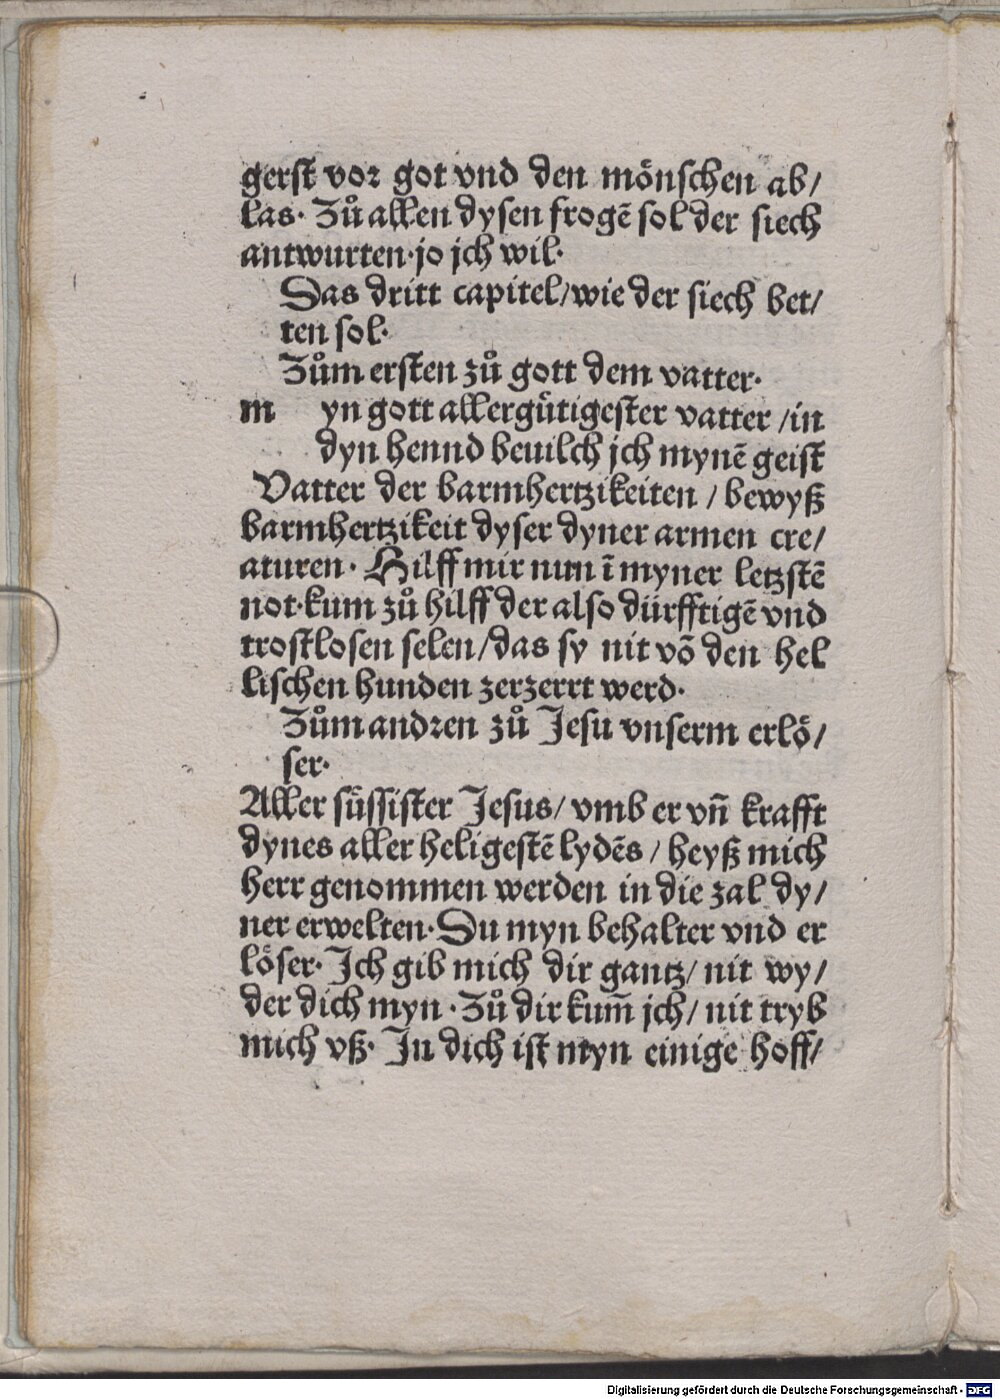 gerſt vor got vnd den moͤnſchen ab/
las· Zuͦ allen dyſen frogē ſol der ſiech
antwurten·jo jch wil·
Das dritt capitel/wie der ſiech bet/
ten ſol·
Zuͦm erſten zuͦ gott dem vatter·
m yn gott allerguͤtigeſter vatter /in
dyn hennd beuilch jch mynē geiſt
Vatter der barmhertzikeiten / bewyß
barmhertzikeit dyſer dyner armen cre/
aturen· Hilff mir nun ī myner letzſtē
not·kum zuͦ hilff der alſo dürfftigē vnd
troſtloſen ſelen/das ſy nit võ den hel
liſchen hunden zerzerrt werd·
Zuͦm andren zuͦ Jeſu vnſerm erloͤ/
ſer·
Aller ſuͤſſiſter Jeſus/ vmb er vn̄ krafft
dynes aller heligeſtē lydēs / heyß mich
herr genommen werden in die zal dy/
ner erwelten·Du myn behalter vnd er
loͤſer· Ich gib mich dir gantz/ nit wy/
der dich myn ·Zuͦ dir kum̄ jch/ nit tryb
mich vß· In dich iſt myn einige hoff/
Digitalisierung gefördert durch die Deutsche Forschungsgemeinschaft - DFG